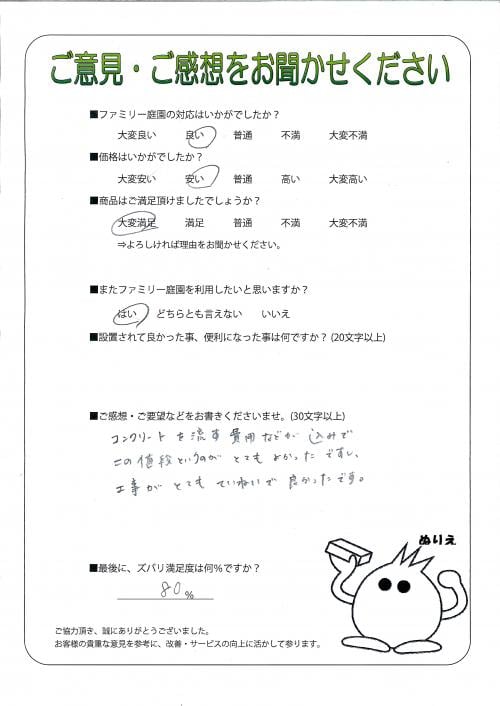 ご意見・ご感想をお聞かせください
■ファミリー庭園の対応はいかがでしたか？
大変良い 良い 普通 不満 大変不満
■価格はいかがでしたか？
大変安い 安い 普通 高い 大変高い
■商品はご満足頂けましたでしょうか？
大変満足 満足 普通 不満 大変不満
⇒よろしければ理由をお聞かせください。
■またファミリー庭園を利用したいと思いますか？
はい どちらとも言えない いいえ
■設置されて良かった事、便利になった事は何ですか？(20文字以上)
■ご感想・ご要望などをお書きくださいませ。(30文字以上)
コンクリートを流す費用などが込みで
この値段というのがとてもよかったですし、
工事がとてもていねいで良かったです。
ぬりえ
■最後に、ズバリ満足度は何％ですか？
80%
ご協力頂き、誠にありがとうございました。
お客様の貴重な意見を参考に、改善・サービスの向上に活かして参ります。